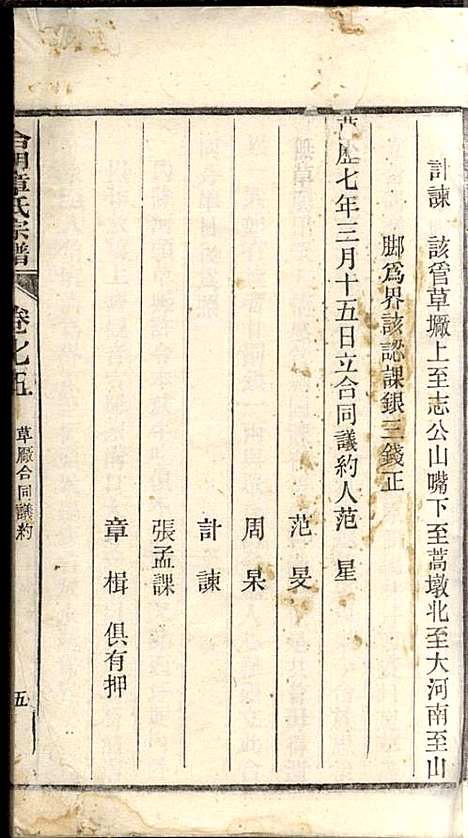 計諫 該管草塲上至志公山嘴下至蒿墩北至大河南至山
脚爲界該認課銀三錢正
萬歷七年三月十五日立合同議約人范 星
范 旻
周 杲
計 諫
張孟課
章 楫 俱有押
章氏宗譜 卷 五 草厰合同議約 五